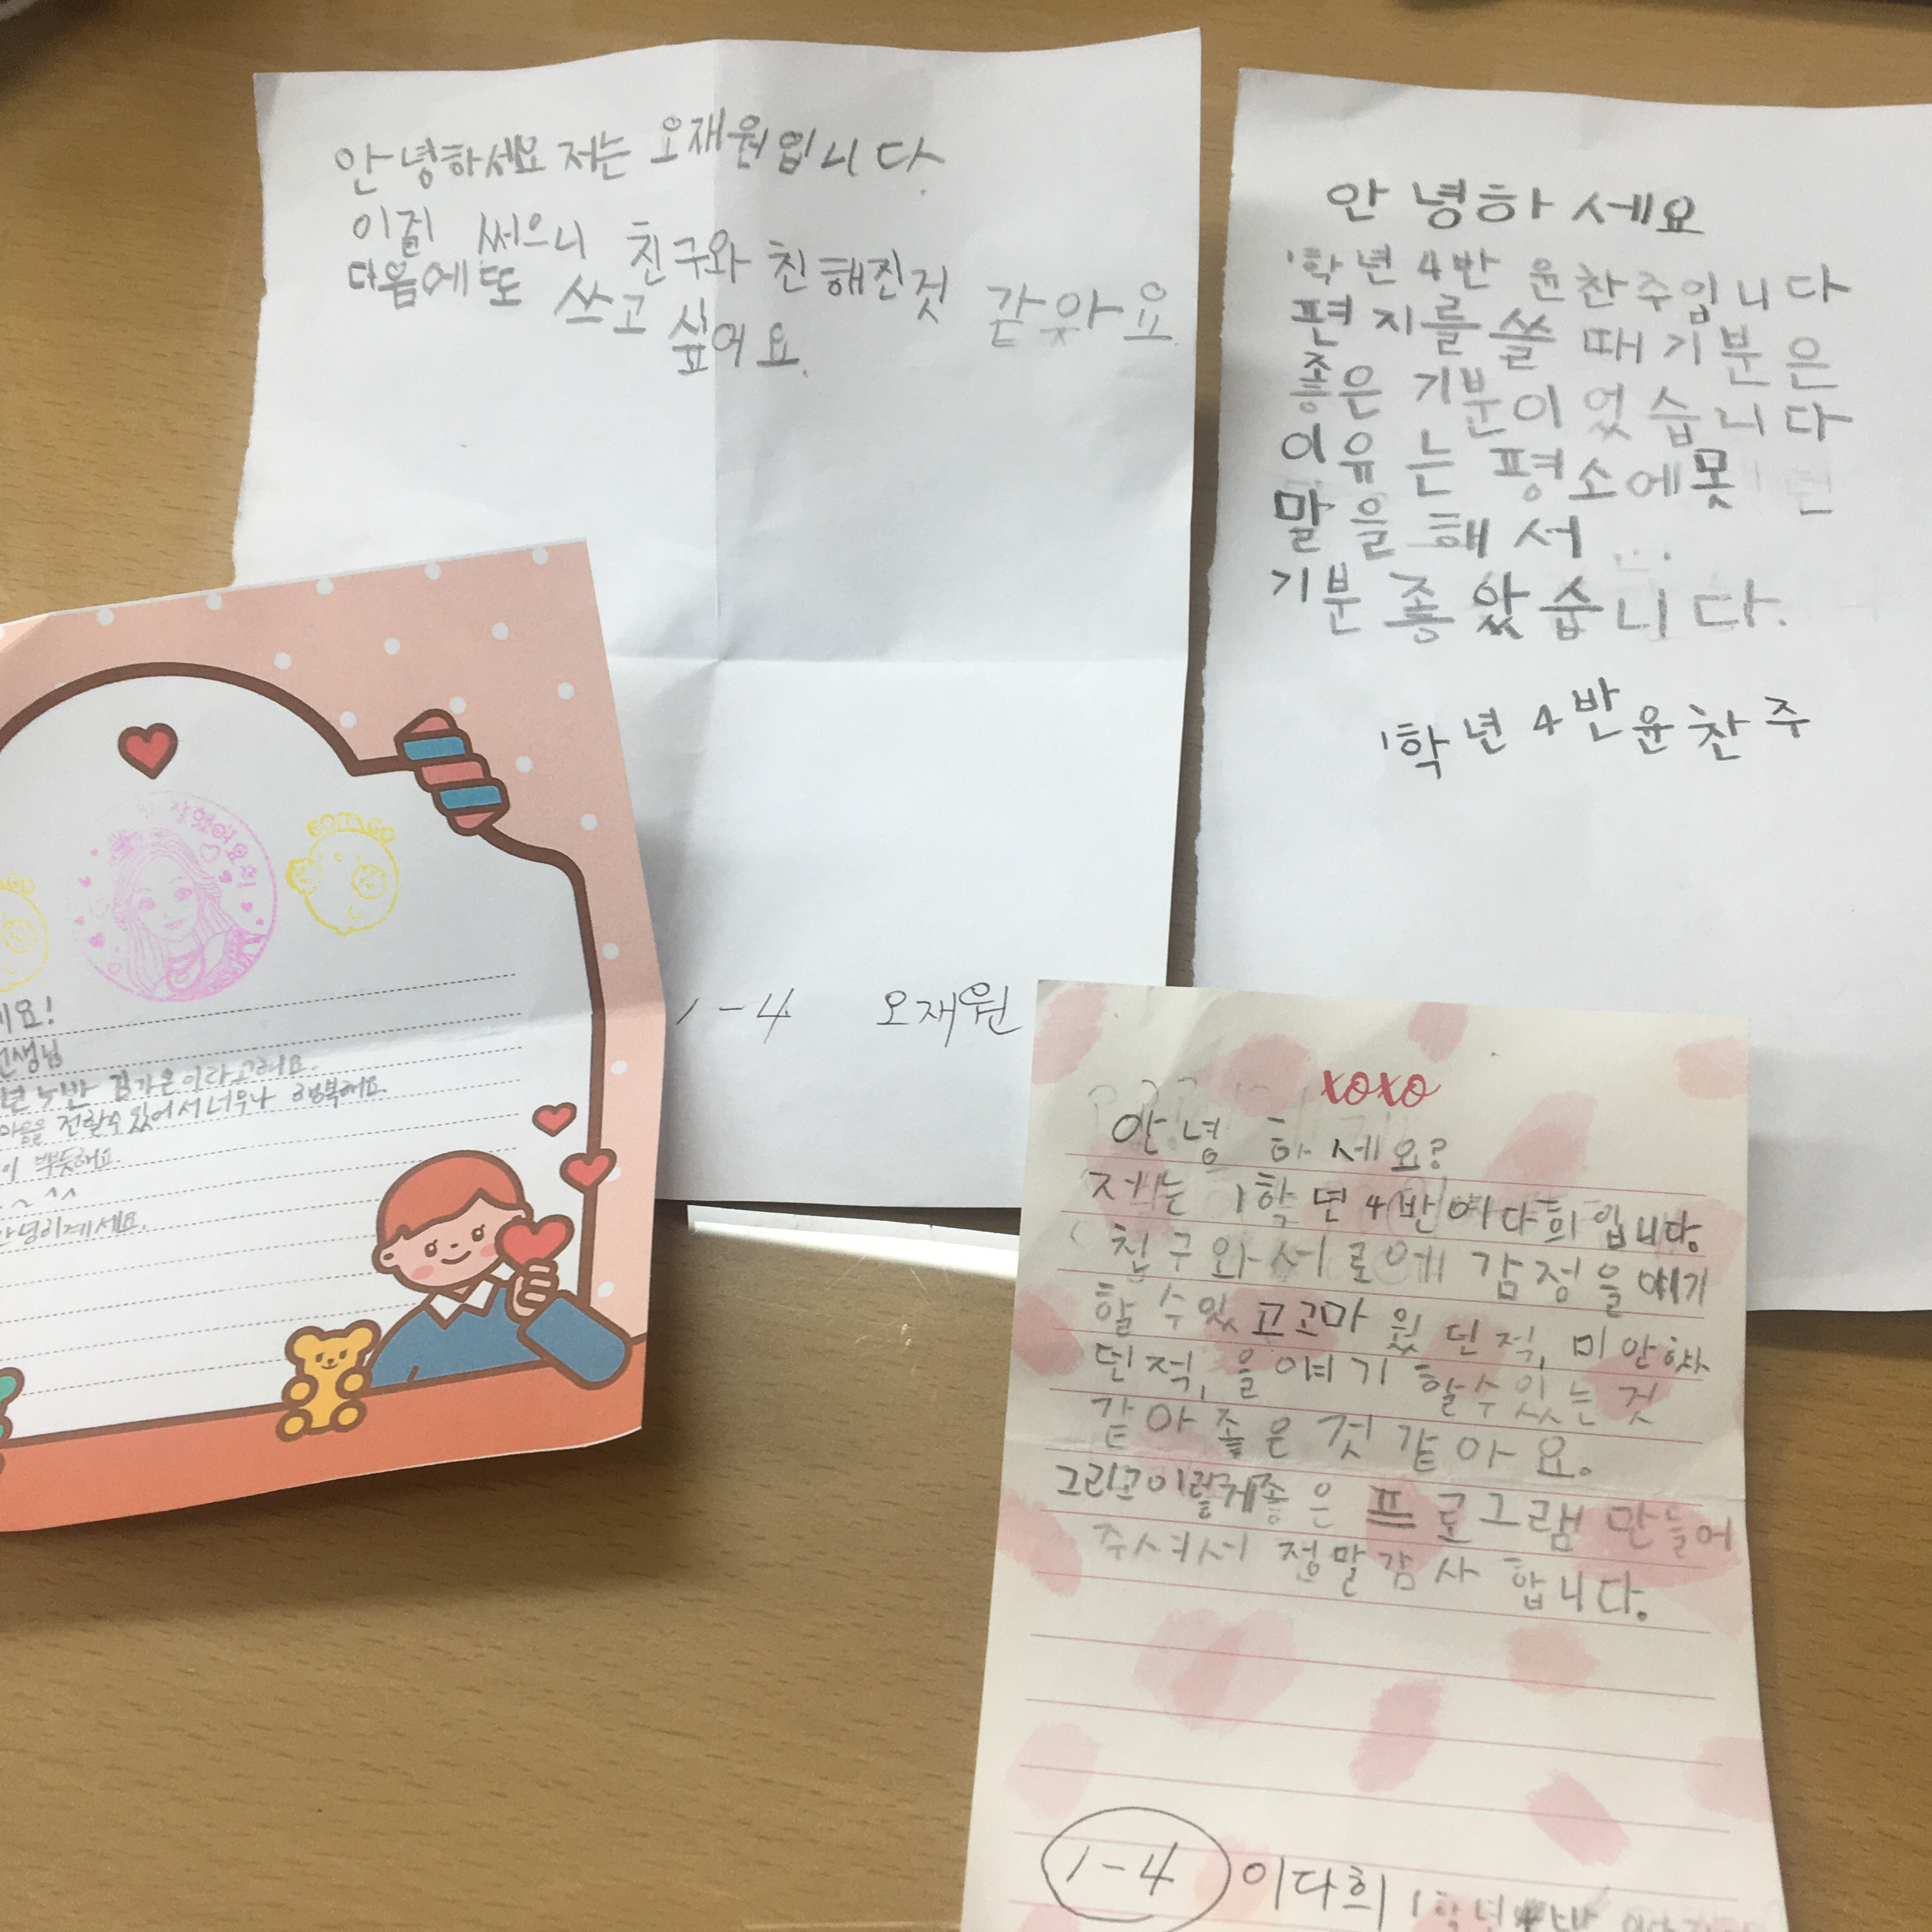 안녕하세요 저는 오재원입니다.
이걸 써으니 친구와 친해진것 같아요.
다음에 또 쓰고 싶어요.
1-4 오재원
안녕하세요
1학년 4반 윤찬주입니다
편지를 쓸 때 기분은
좋은 기분이었습니다
이유는 평소에 못
말을 해서 ...
기분 좋았습니다.
1학년 4반 윤찬주
잘했어요
세요!
선생님
년 4반 김가온이라고해요.
마음을 전할수있어서 너무나 행복해요.
이 뿌듯해요.
~^^
안녕히계세요.
xoxo
안녕하세요?
저는 1학년 4반 이다희입니다.
친구와 서로에 감정을 얘기
할 수 있고 고마웠던 적, 미안했
던적, 을 얘기 할수있는 것
같아 좋은 것 같아요.
그리고 이렇게 좋은 프로그램 만들어
주셔서 정말 감사합니다.
1-4 이다희 1학년 4반